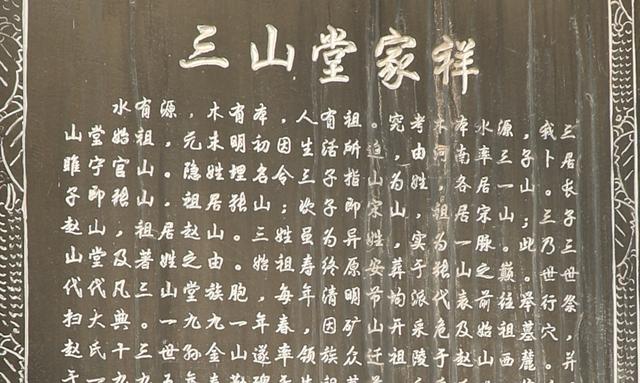 三山堂家祥
三居长子三世祭，并
我卜。三乃世行穴。
，子山；此。举墓麓
源三一山。巅往祖西
水率居宋脉之前始山
本南各居一山表及赵
木河，祖为张代危于
考由姓，实于派采陵
究，为山，葬均开祖
。追山宋姓安节山迁
祖所指即异原明矿众
有活子子为终清因族
人生三次虽寿年，领生
，因令；姓祖每春率
本初名山三始，年遂碑
有明埋张。。胞一山勤
木未姓居山由族九金
，元隐祖赵之堂九孙
源。。，居姓山一世五
有祖山。山祖著三。三九
水始官张，及凡典十九
堂宇即山堂代大氏一
山雎子赵山代扫赵于